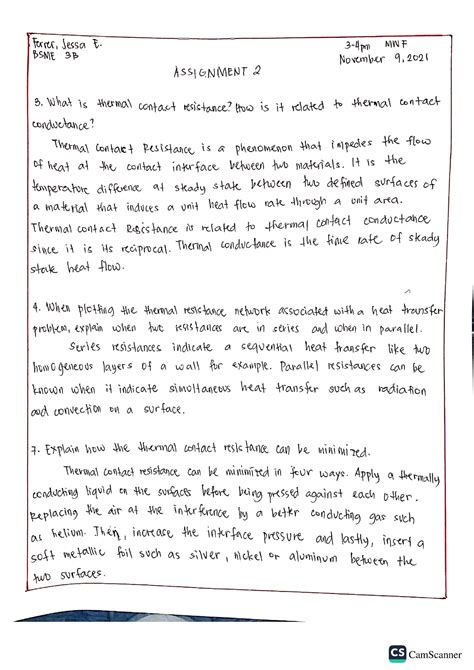 Ferrer, Jessa E. 3-4pm MWF
BSME 3B November 9, 2021
ASSIGNMENT 2
3. What is thermal contact resistance? How is it related to thermal contact
conductance?
Thermal Contact Resistance is a phenomenon that impedes the flow
of heat at the contact interface between two materials. It is the
temperature difference at steady state between two defined surfaces of
a material that induces a unit heat flow rate through a unit area.
Thermal Contact Resistance is related to thermal contact conductance
since it is its reciprocal. Thermal conductance is the time rate of steady
state heat flow.
4. When plotting the thermal resistance network associated with a heat transfer
problem, explain when two resistances are in series and when in parallel.
Series resistances indicate a sequential heat transfer like two
homogeneous layers of a wall for example. Parallel resistances can be
known when it indicate simultaneous heat transfer such as radiation
and convection on a surface.
7. Explain how the thermal contact resistance can be minimized.
Thermal contact resistance can be minimized in four ways. Apply a thermally
conducting liquid on the surfaces before being pressed against each other.
Replacing the air at the interference by a better conducting gas such
as helium. Then, increase the interface pressure and lastly, insert a
soft metallic foil such as silver, nickel or aluminum between the
two surfaces.
CS CamScanner